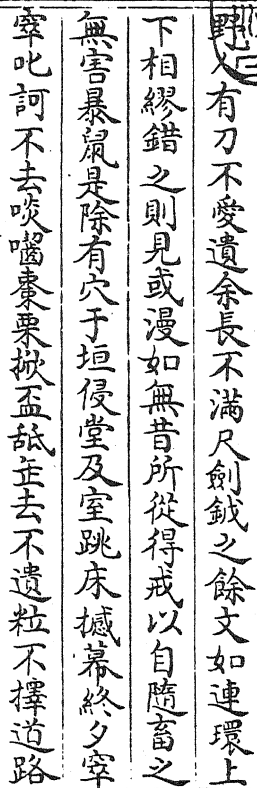 野人有刀不愛遺余長不滿尺劍鉞之餘文如連環上
下相繆錯之則見或漫如無昔所從得戒以自隨畜之
無害暴鼠是除有穴于垣侵堂及室跳床撼幕終夕窣
窣叱訶不去啖嚙棗栗掀盃舐缶去不遺粒不擇道路